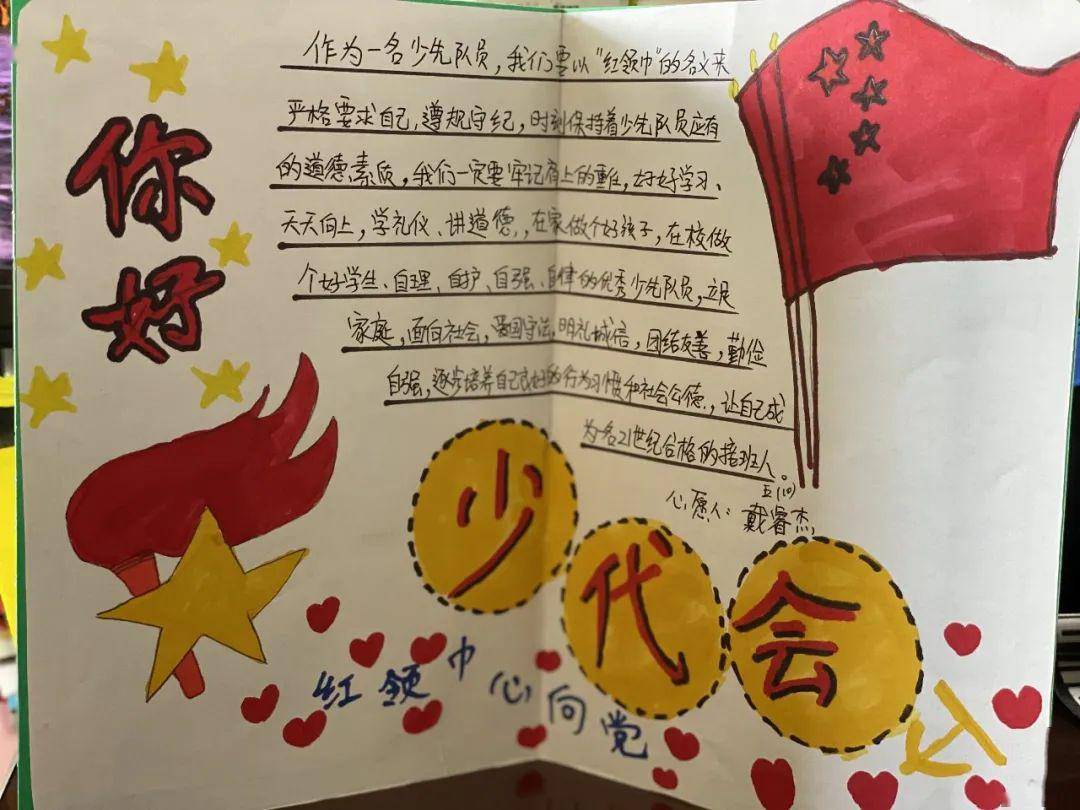 你好
作为一名少先队员，我们要以“红领巾”的名义来
严格要求自己，遵规守纪，时刻保持着少先队员应有
的道德素质，我们一定要牢记肩上的重任，好好学习、
天天向上，学礼仪、讲道德，在家做个好孩子，在校做
个好学生、自理、自护、自强、自律的优秀少先队员，立足
家庭，面向社会，爱国守法，明礼诚信，团结友善，勤俭
自强，逐步培养自己良好的行为习惯和社会公德，让自己成
为一名21世纪合格的接班人。
五(10)
心愿人：戴睿杰
少代会
红领巾心向党